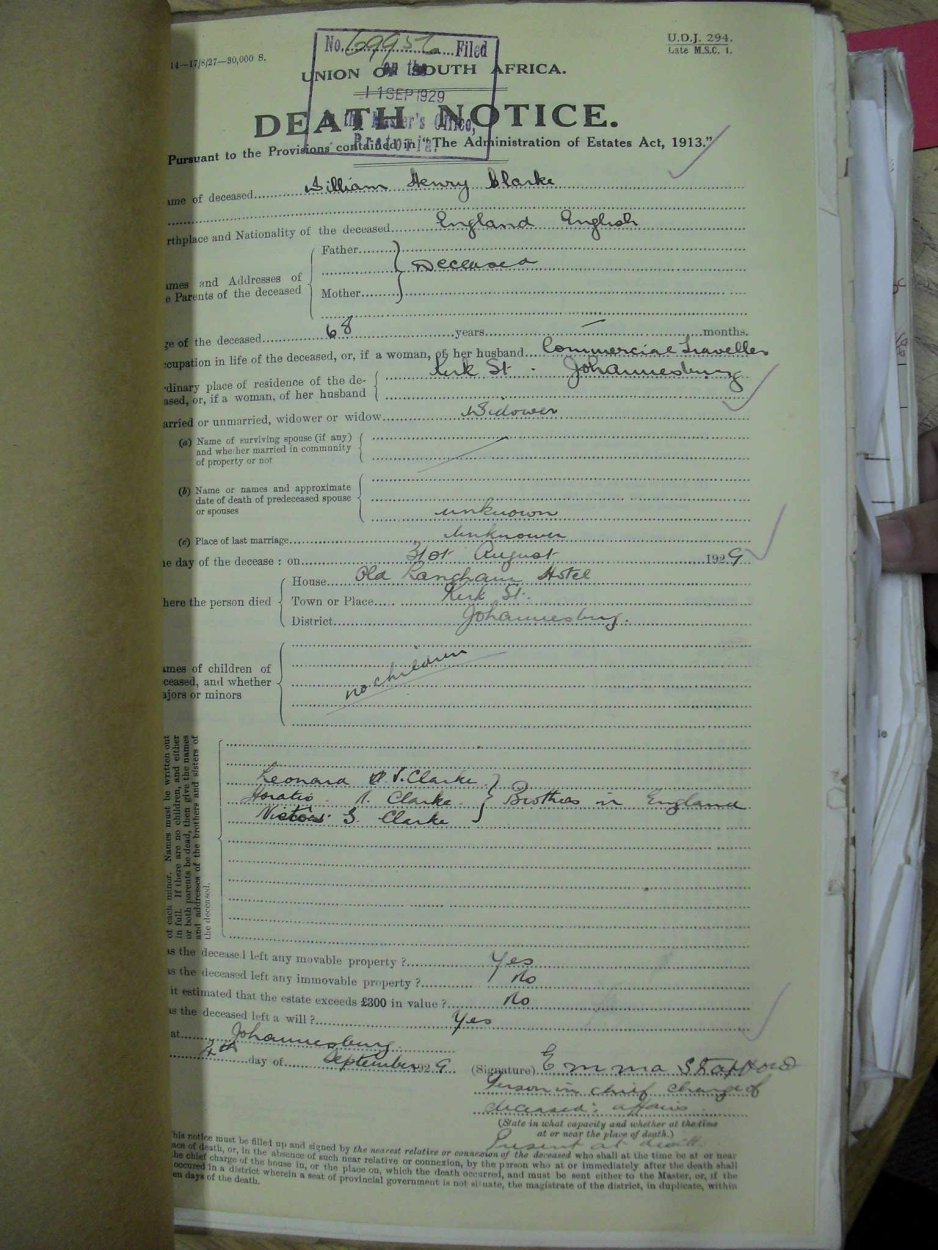 U.D.J. 294.
Late M.S.C. 1.
14—17/8/27—30,000 S.
No. Filed
on the
11 SEP 1929
Master's Office,
Pretoria.
UNION OF SOUTH AFRICA.
DEATH NOTICE.
Pursuant to the Provisions contained in "The Administration of Estates Act, 1913."
ame of deceased William Henry Clarke
rthplace and Nationality of the deceased England English
Father
ames and Addresses of
e Parents of the deceased
Deceased
Mother
ge of the deceased 68 years — months.
ccupation in life of the deceased, or, if a woman, of her husband Commercial Traveller
rdinary place of residence of the de-
ased, or, if a woman, of her husband
Kerk St. Johannesburg
arried or unmarried, widower or widow Widower
(a) Name of surviving spouse (if any)
and whether married in community
of property or not
(b) Name or names and approximate
date of death of predeceased spouse
or spouses
unknown
(c) Place of last marriage unknown
he day of the decease : on 31st August 1929
here the person died
House Old Langham Hotel
Town or Place Kerk St.
District Johannesburg.
ames of children of
ceased, and whether
ajors or minors
no children
of each minor. Names must be written out
in full. If there are no children, and either
or both parents be dead, then give the names
and addresses of the brothers and sisters of
the deceased.
Leonard Clarke
Horatio Clarke Brothers in England
Victor G. Clarke
as the deceased left any movable property ? Yes
as the deceased left any immovable property ? No
it estimated that the estate exceeds £300 in value ? No
as the deceased left a will ? Yes
at Johannesburg
4th day of September 1929
(Signature) Emma Stafford
Person in chief charge of
deceased's affairs.
(State in what capacity and whether at the time
at or near the place of death.)
Present at death.
his notice must be filled up and signed by the nearest relative or connexion of the deceased who shall at the time be at or near
ace of death, or, in the absence of such near relative or connexion, by the person who at or immediately after the death shall
he chief charge of the house in, or the place on, which the death occurred, and must be sent either to the Master, or, if the
occurred in a district wherein a seat of provincial government is not situate, the magistrate of the district, in duplicate, within
en days of the death.